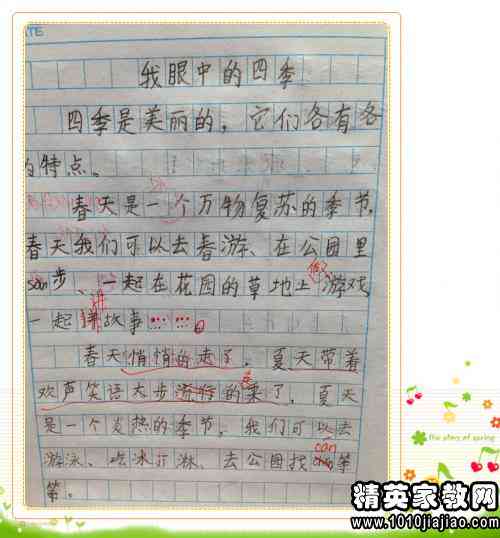 我眼中的四季
四季是美丽的，它们各有各
的特点。
春天是一个万物复苏的季节，
春天我们可以去春游、在公园里
san步、一起在花园的草地上做游戏
一起讲故事……。
春天悄悄的走了，夏天带着
欢声笑语大步流行的来了，夏天
是一个炎热的季节，我们可以去
游泳、吃冰淇淋、去公园找can等
等。
the story of spring
精英家教网
www.1010jiajiao.com